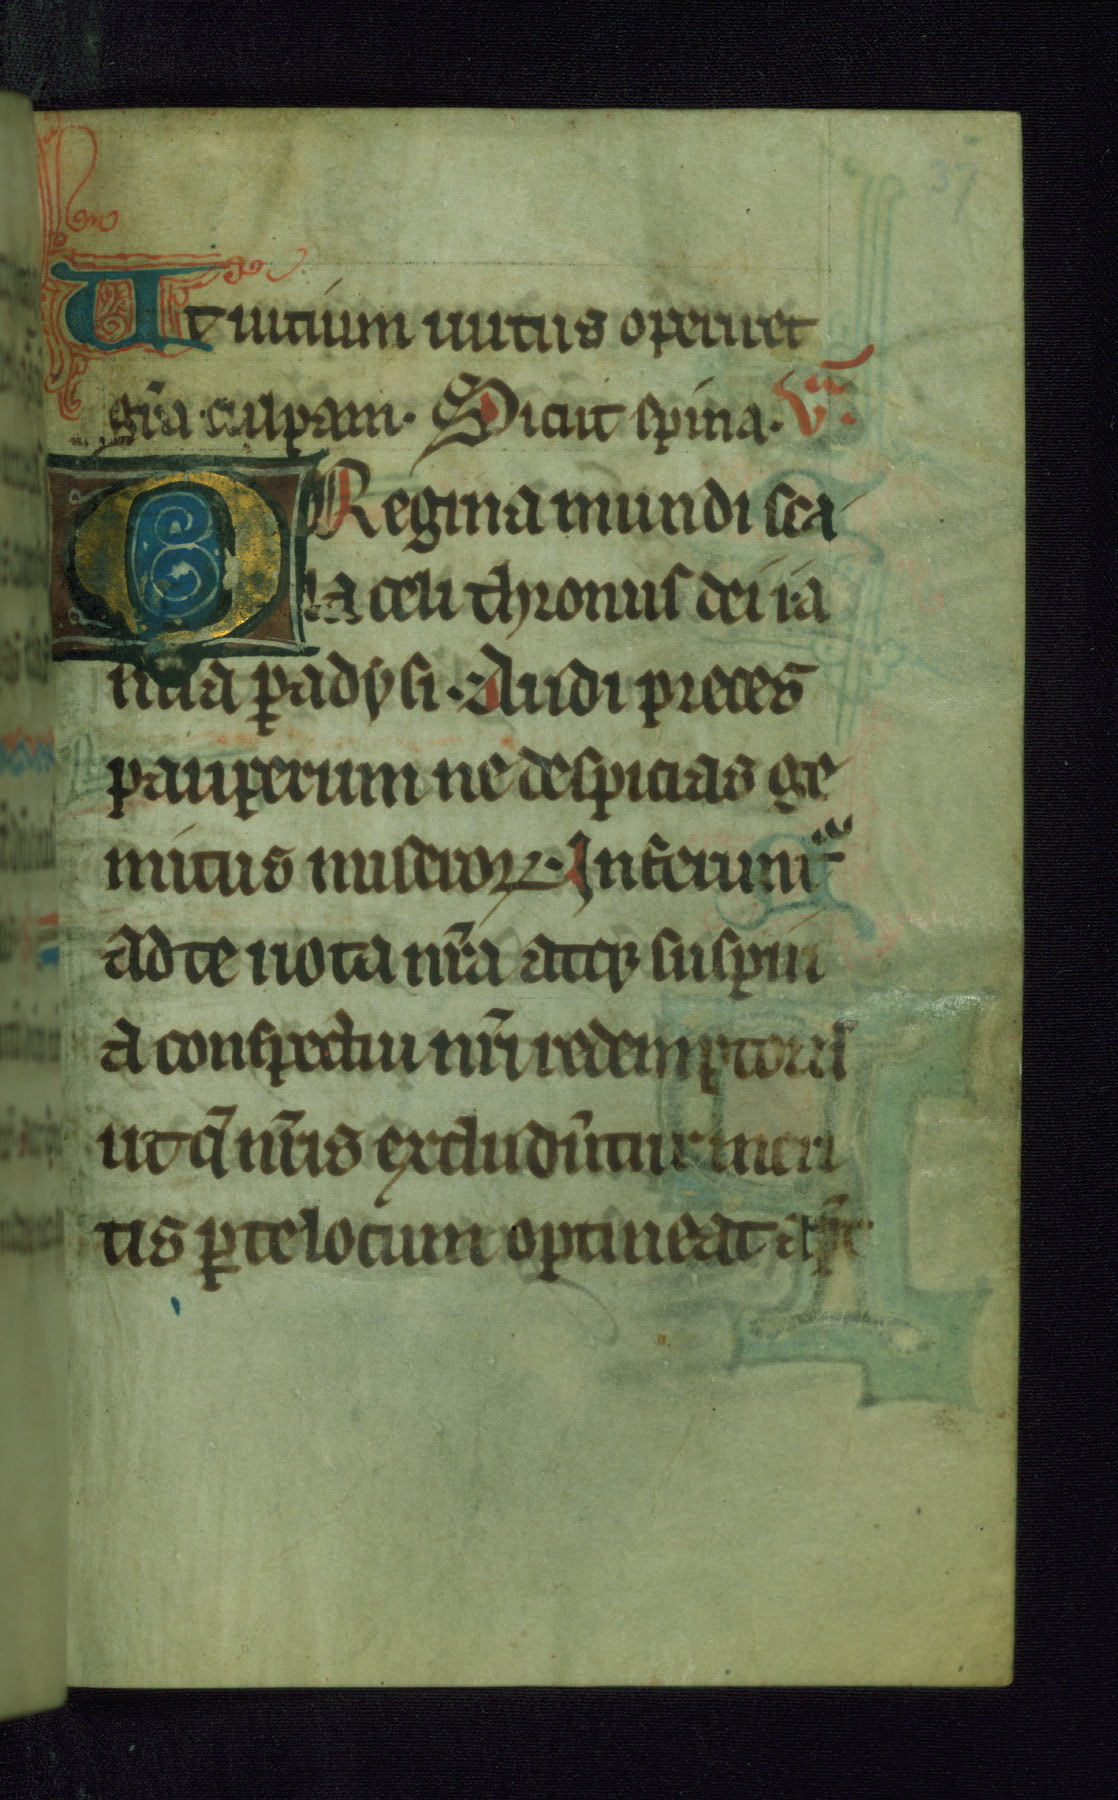 37
Ut uitium uirtus operiret
gr̄a culpam. Sicut spina. V̄.
O Regina mundi sca
la celi thronus dei ia
nua ꝑadysi. Audi preces
pauperum ne despicias ge
mitus miseroꝝ. Inferunt̃
ad te uota nr̄a atqꝫ suspiri
a conspectui nr̄i redemptoris
ut q̄ nr̄is excludūtur meri
tis ꝑ te locum optineāt ap̄t